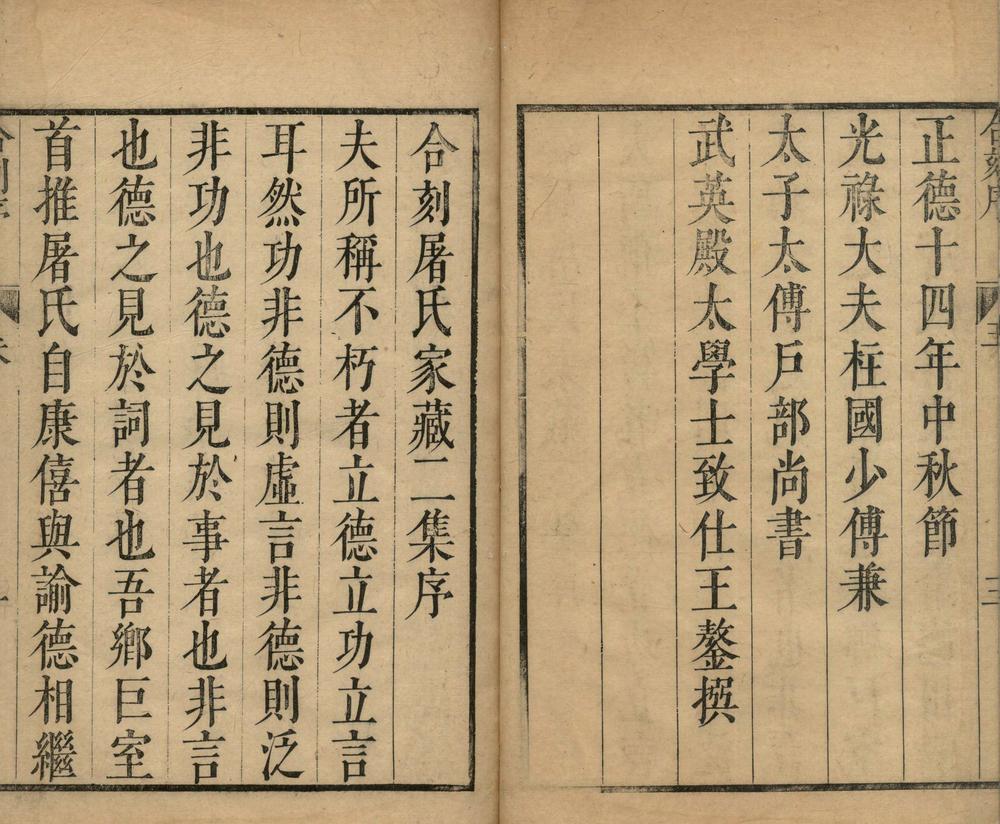 正德十四年中秋節
光祿大夫柱國少傅兼
太子太傅戶部尚書
武英殿大學士致仕王鏊撰
合刻屠氏家藏二集序
夫所稱不朽者立德立功立言
耳然功非德則虛言非德則泛
非功也德之見於事者也非言
也德之見於詞者也吾鄉巨室
首推屠氏自康僖與諭德相繼